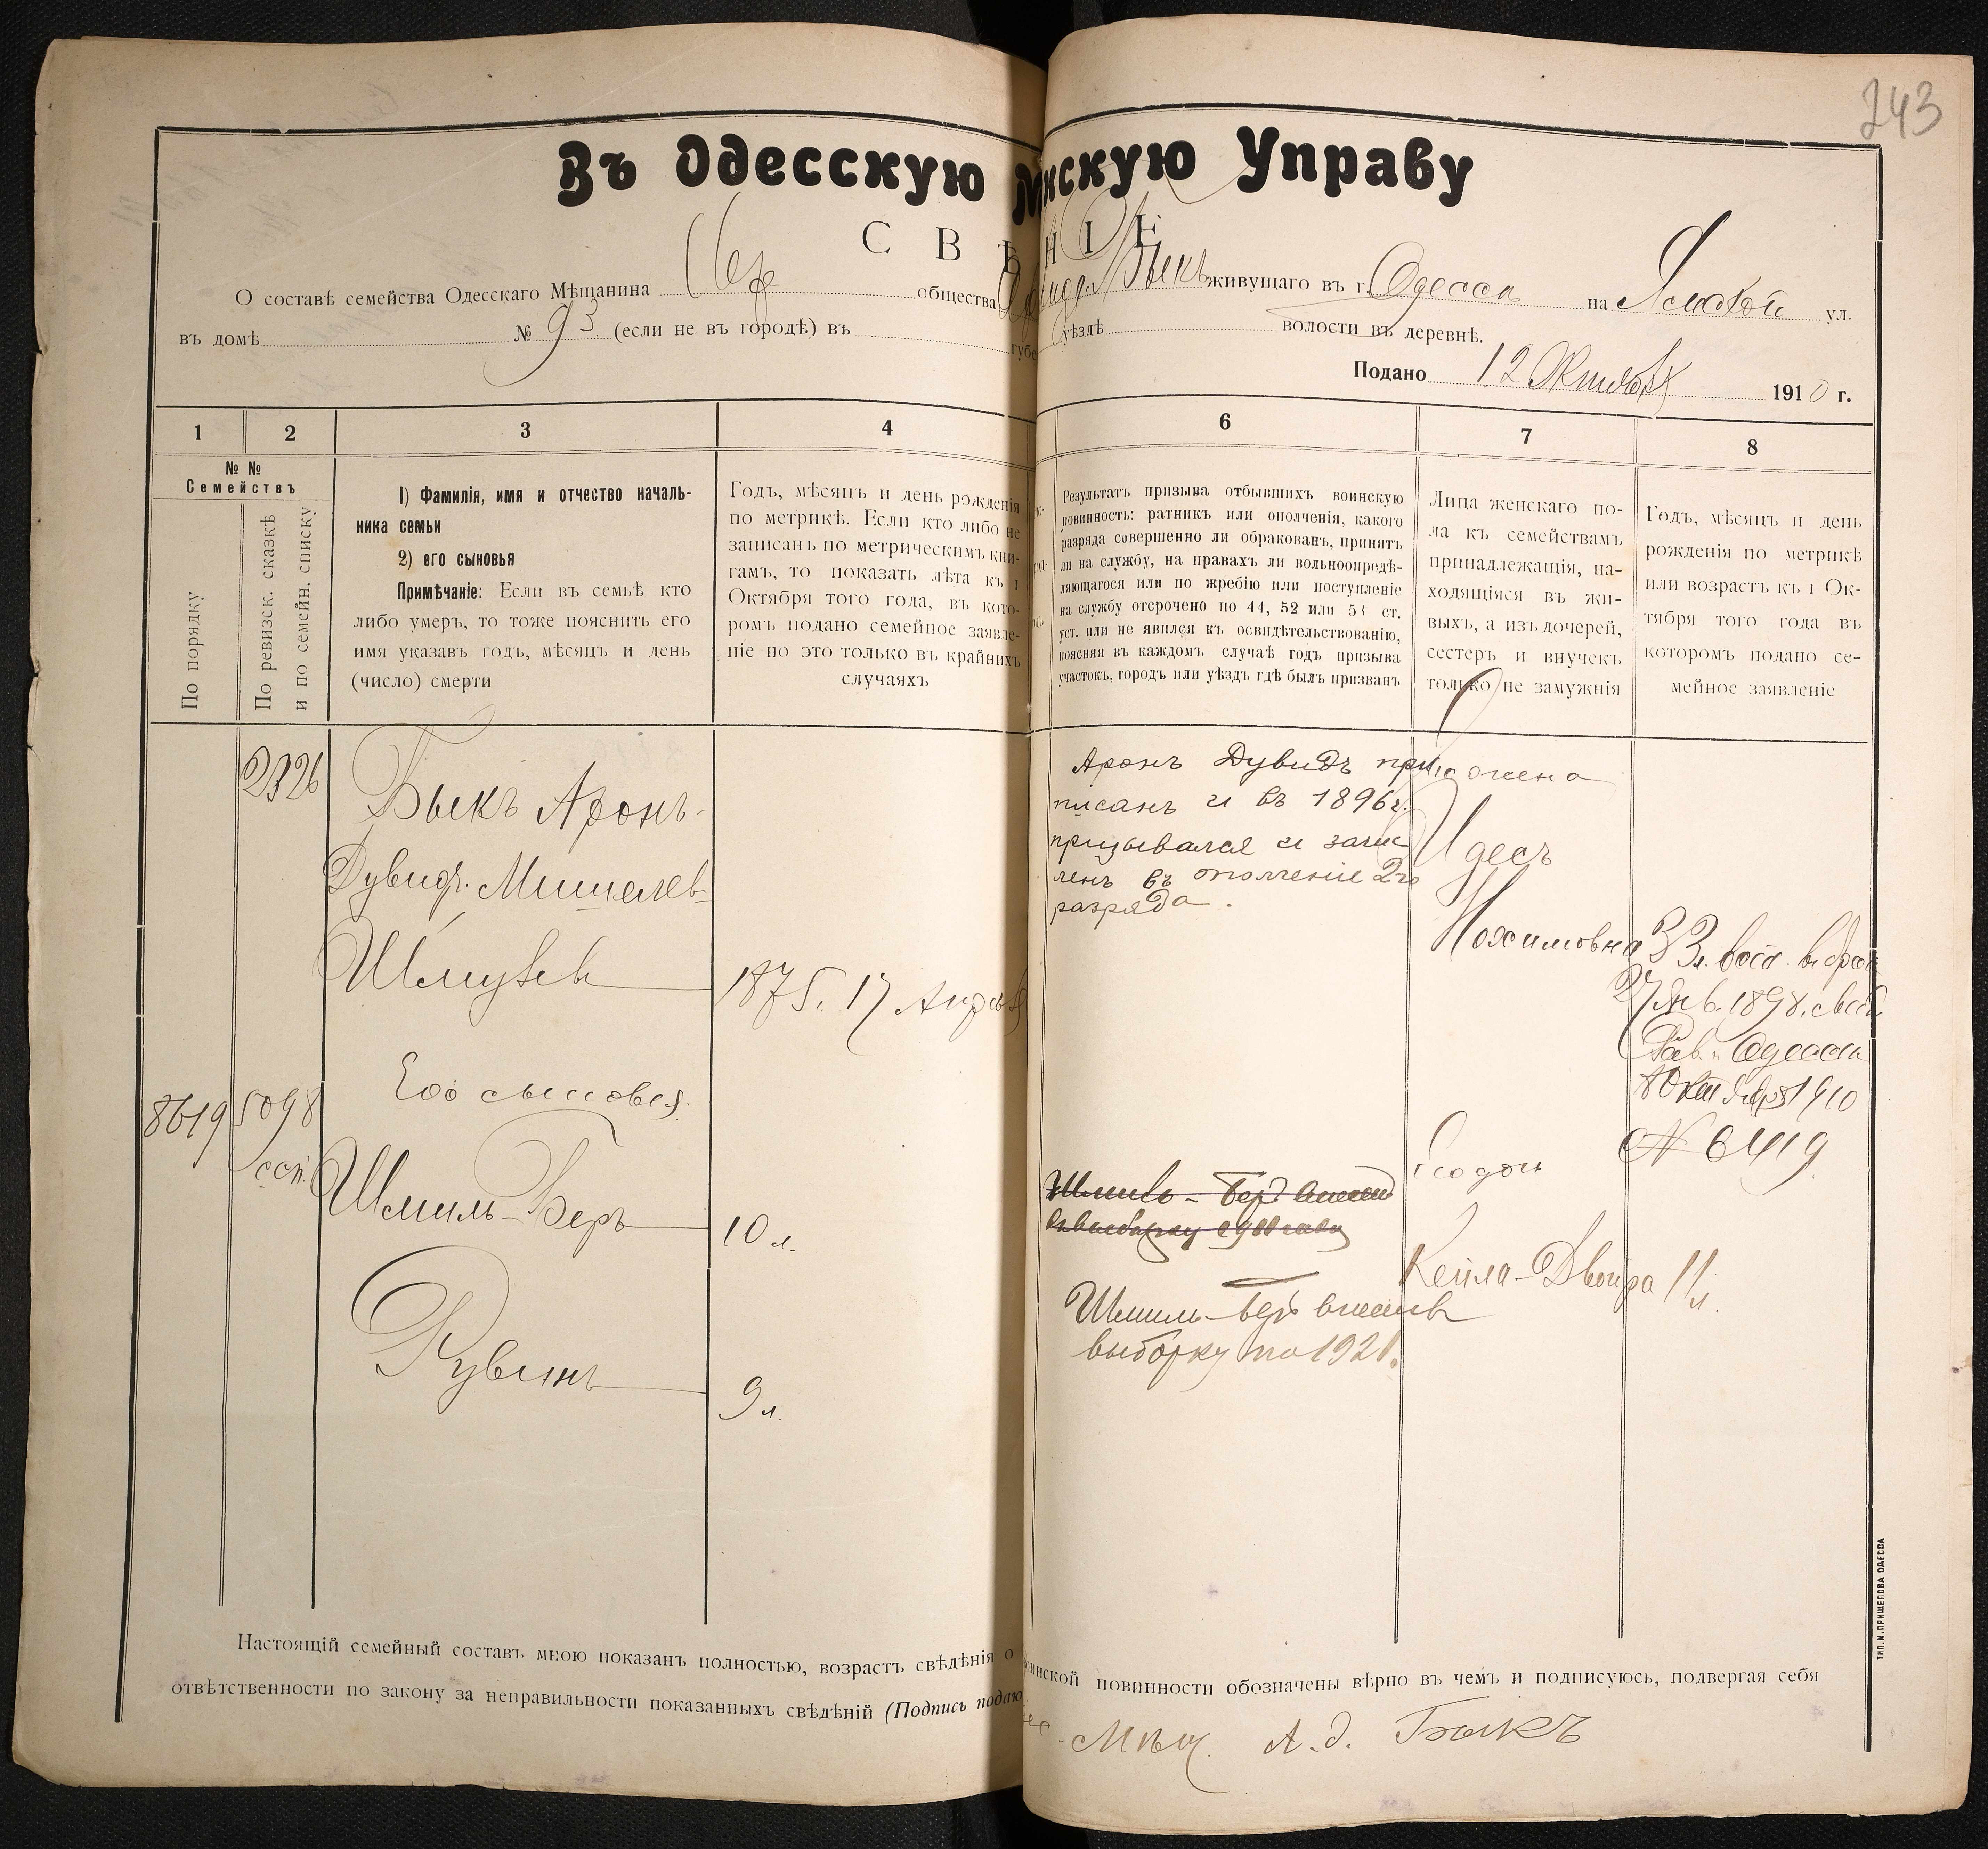 243
Въ Одесскую нскую Управу
С В Ѣ Н І Е
О составѣ семейства Одесскаго Мѣщанина Евр общества Быкъ живущаго въ г. Одесса на ул.
въ домѣ № 93 (если не въ городѣ) въ губе уѣздѣ волости въ деревнѣ.
Подано 12 Октября 1910 г.
1 2 3 4 6 7 8
№ №
Семействъ
По порядку
По ревизск. сказкѣ
и по семейн. списку
1) Фамилія, имя и отчество началь-
ника семьи
2) его сыновья
Примѣчаніе: Если въ семьѣ кто
либо умеръ, то тоже пояснить его
имя указавъ годъ, мѣсяцъ и день
(число) смерти
Годъ, мѣсяцъ и день рожденія
по метрикѣ. Если кто либо не
записанъ по метрическимъ кни-
гамъ, то показать лѣта къ 1
Октября того года, въ кото-
ромъ подано семейное заявле-
ніе но это только въ крайнихъ
случаяхъ
Результатъ призыва отбывшихъ воинскую
повинность: ратникъ или ополченія, какого
разряда совершенно ли обракованъ, принятъ
ли на службу, на правахъ ли вольноопредѣ-
ляющагося или по жребію или поступленіе
на службу отсрочено по 44, 52 или 53 ст.
уст. или не явился къ освидѣтельствованію,
поясняя въ каждомъ случаѣ годъ призыва
участокъ, городъ или уѣздъ гдѣ былъ призванъ
Лица женскаго по-
ла къ семействамъ
принадлежащія, на-
ходящіяся въ жи-
выхъ, а изъ дочерей,
сестеръ и внучекъ
только не замужнія
Годъ, мѣсяцъ и день
рожденія по метрикѣ
или возрастъ къ 1 Ок-
тября того года въ
которомъ подано се-
мейное заявленіе
2326
Быкъ Аронъ-
Дувидъ Мишелев-
Шмулев
1875. 17 Апрѣля
Его сыновья
8619 5098
сст.
Шмиль-Беръ 10 л.
Рувинъ 9 л.
Аронъ Дувидъ при
писанъ и въ 1896 г.
призывался и зачис
ленъ въ ополченіе 2го
разряда.
Шмиль-Беръ внесенъ
выборку по 1921.
жена
Идесъ
Нохимовна
33 л.
27 Янв. 1898.
Рав. Одесса
8 Октября 1910
№ 6419
Его дочь
Кейла-Двойра 11 л.
Настоящій семейный составъ мною показанъ полностью, возрастъ свѣдѣнія о воинской повинности обозначены вѣрно въ чемъ и подписуюсь, подвергая себя
отвѣтственности по закону за неправильности показанныхъ свѣдѣній (Подпись подаю
Мѣщ. А. Д. Быкъ
ТИП. М. ПРИЩЕПОВА ОДЕССА